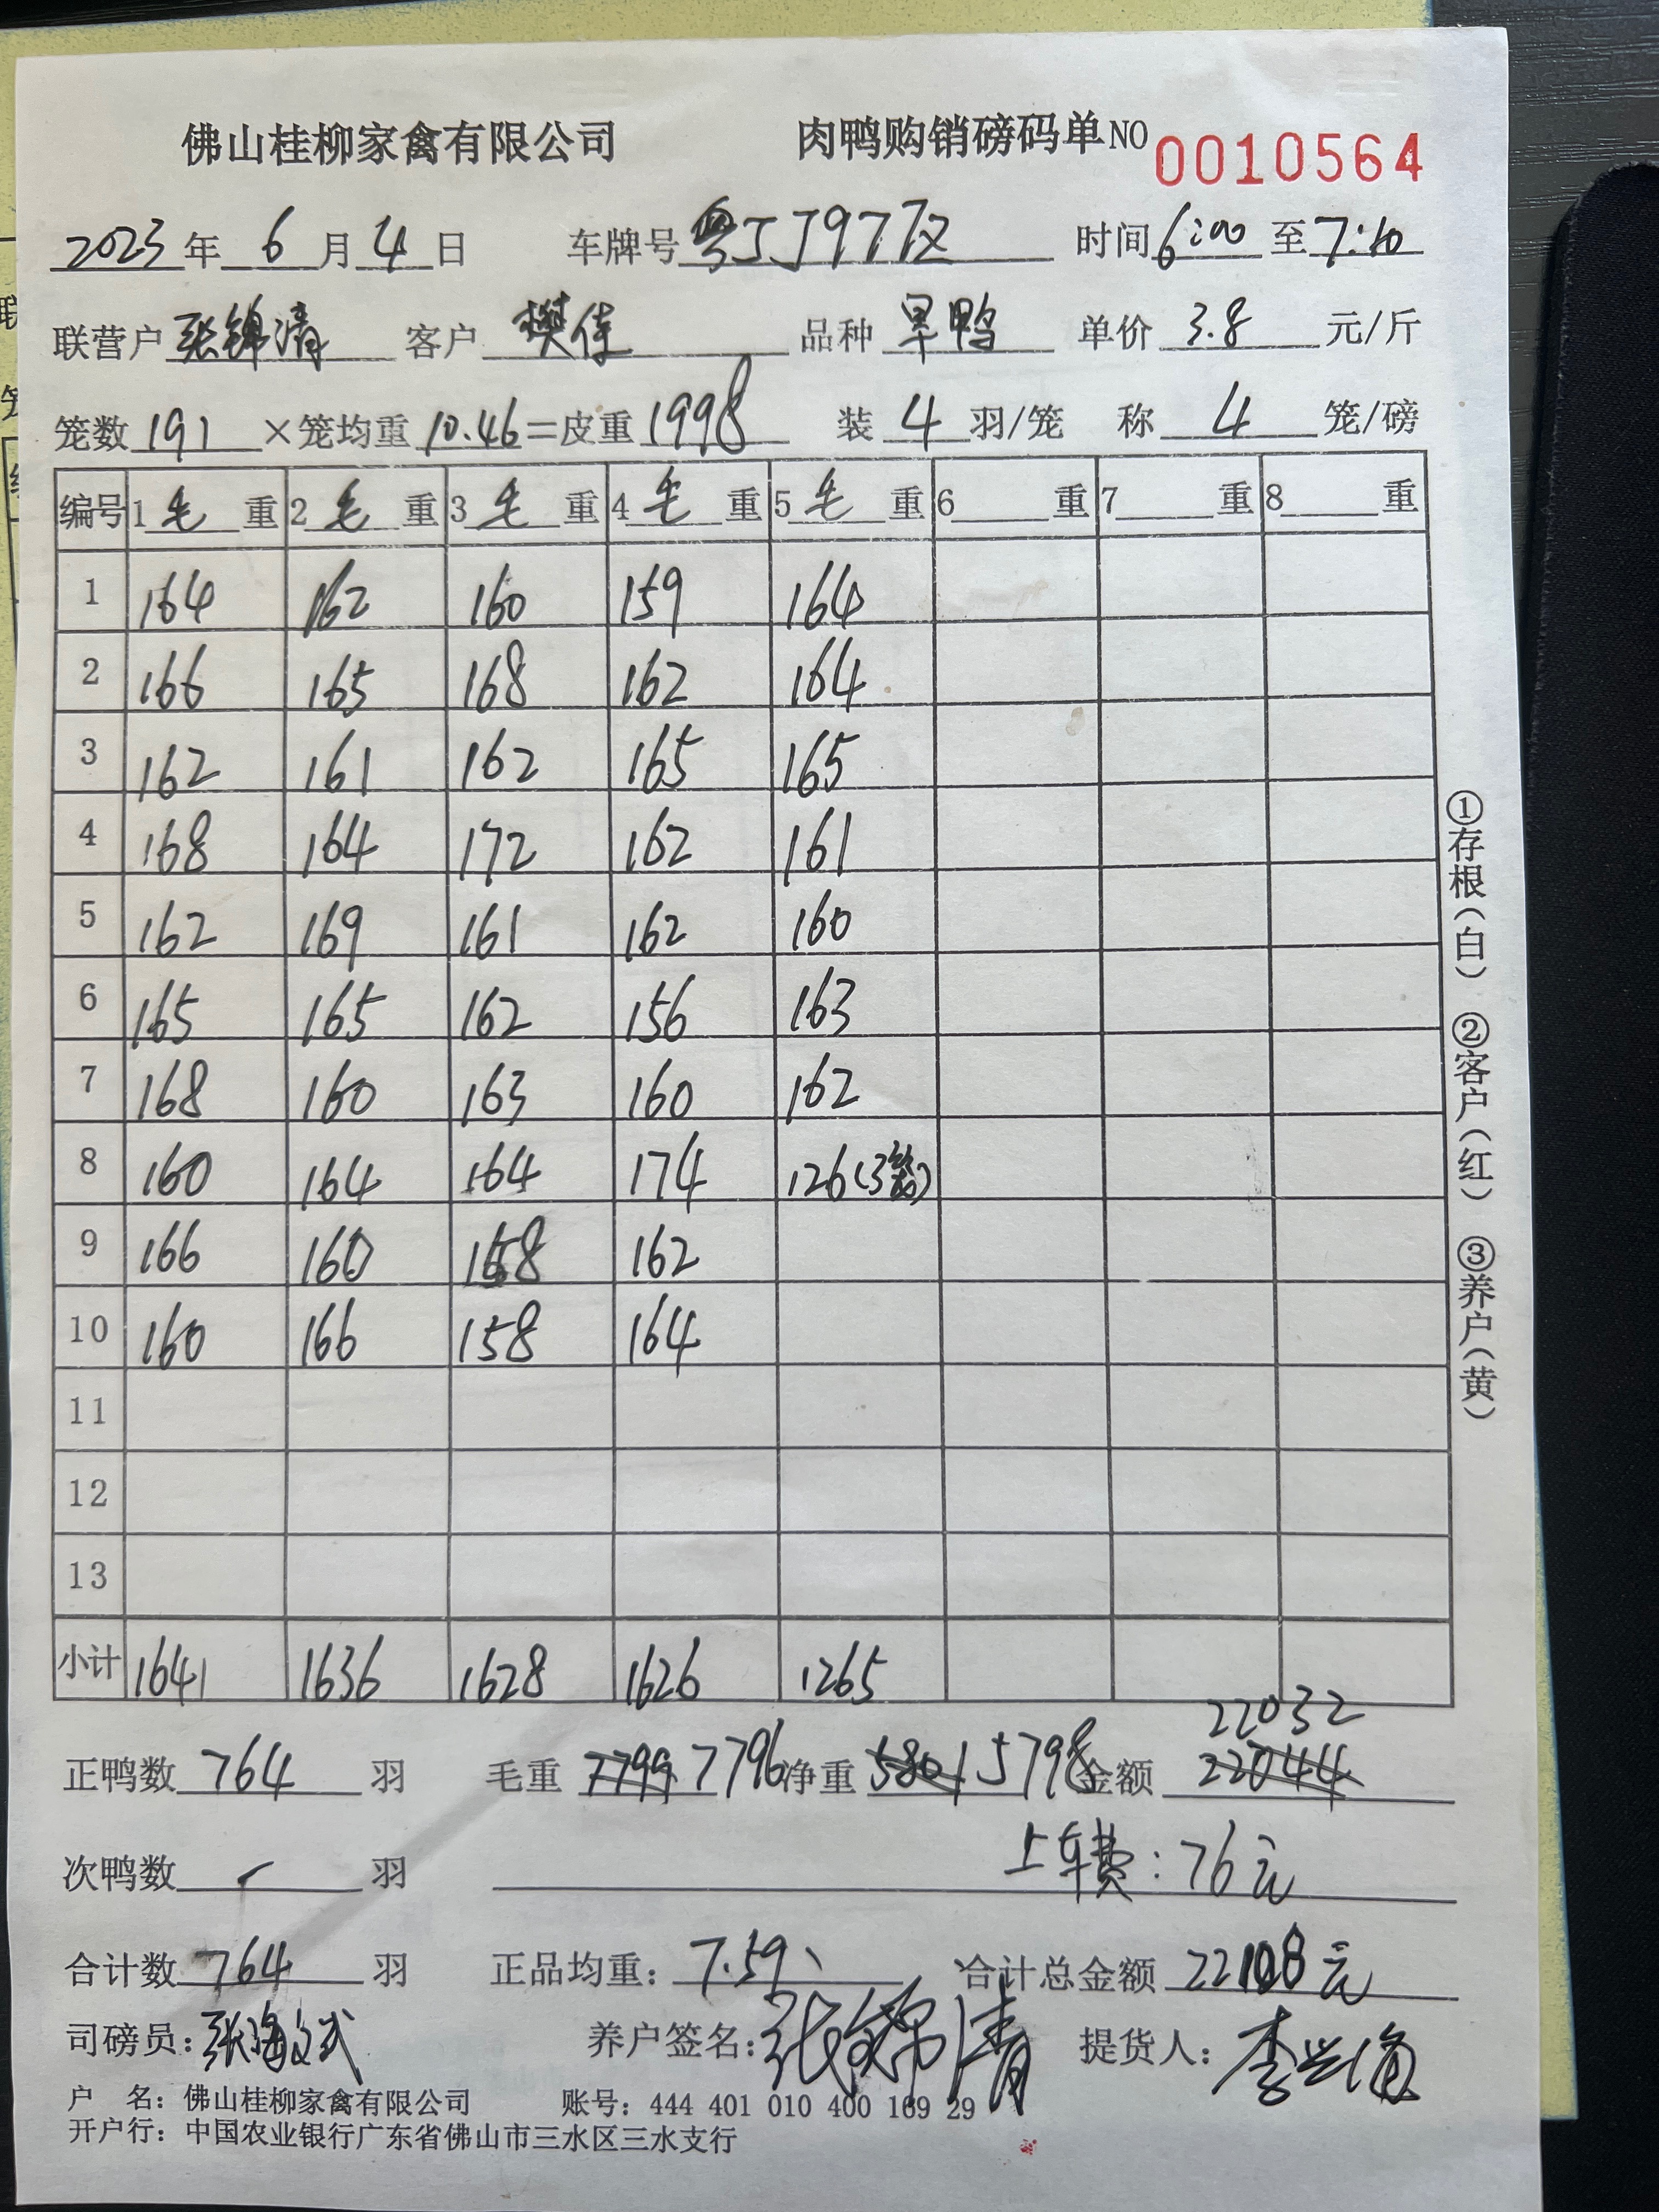 佛山桂柳家禽有限公司 肉鸭购销磅码单 NO 0010564
2023年 6 月 4 日 车牌号 粤JJ977 时间 6:00 至 7:10
联营户 张锦清 客户 樊佳 品种 旱鸭 单价 3.8 元/斤
笼数 191 ×笼均重 10.46 =皮重 1998 装 4 羽/笼 称 4 笼/磅
编号 1 毛 重 2 毛 重 3 毛 重 4 毛 重 5 毛 重 6 重 7 重 8 重
1 164 162 160 159 164
2 166 165 168 162 164
3 162 161 162 165 165
4 168 164 172 162 161
5 162 169 161 162 160
6 165 165 162 156 163
7 168 160 163 160 162
8 160 164 164 174 126(3笼)
9 166 160 158 162
10 160 166 158 164
11
12
13
小计 1641 1636 1628 1626 1265
22032
正鸭数 764 羽 毛重 7799 7796 净重 5801 5798 金额 22044
上车费:76元
次鸭数 羽
合计数 764 羽 正品均重: 7.59 合计总金额 22108元
司磅员: 张海 养户签名: 张锦清 提货人: 李兴海
户 名: 佛山桂柳家禽有限公司 账号: 444 401 010 400 169 29
开户行: 中国农业银行广东省佛山市三水区三水支行
①存根(白) ②客户(红) ③养户(黄)